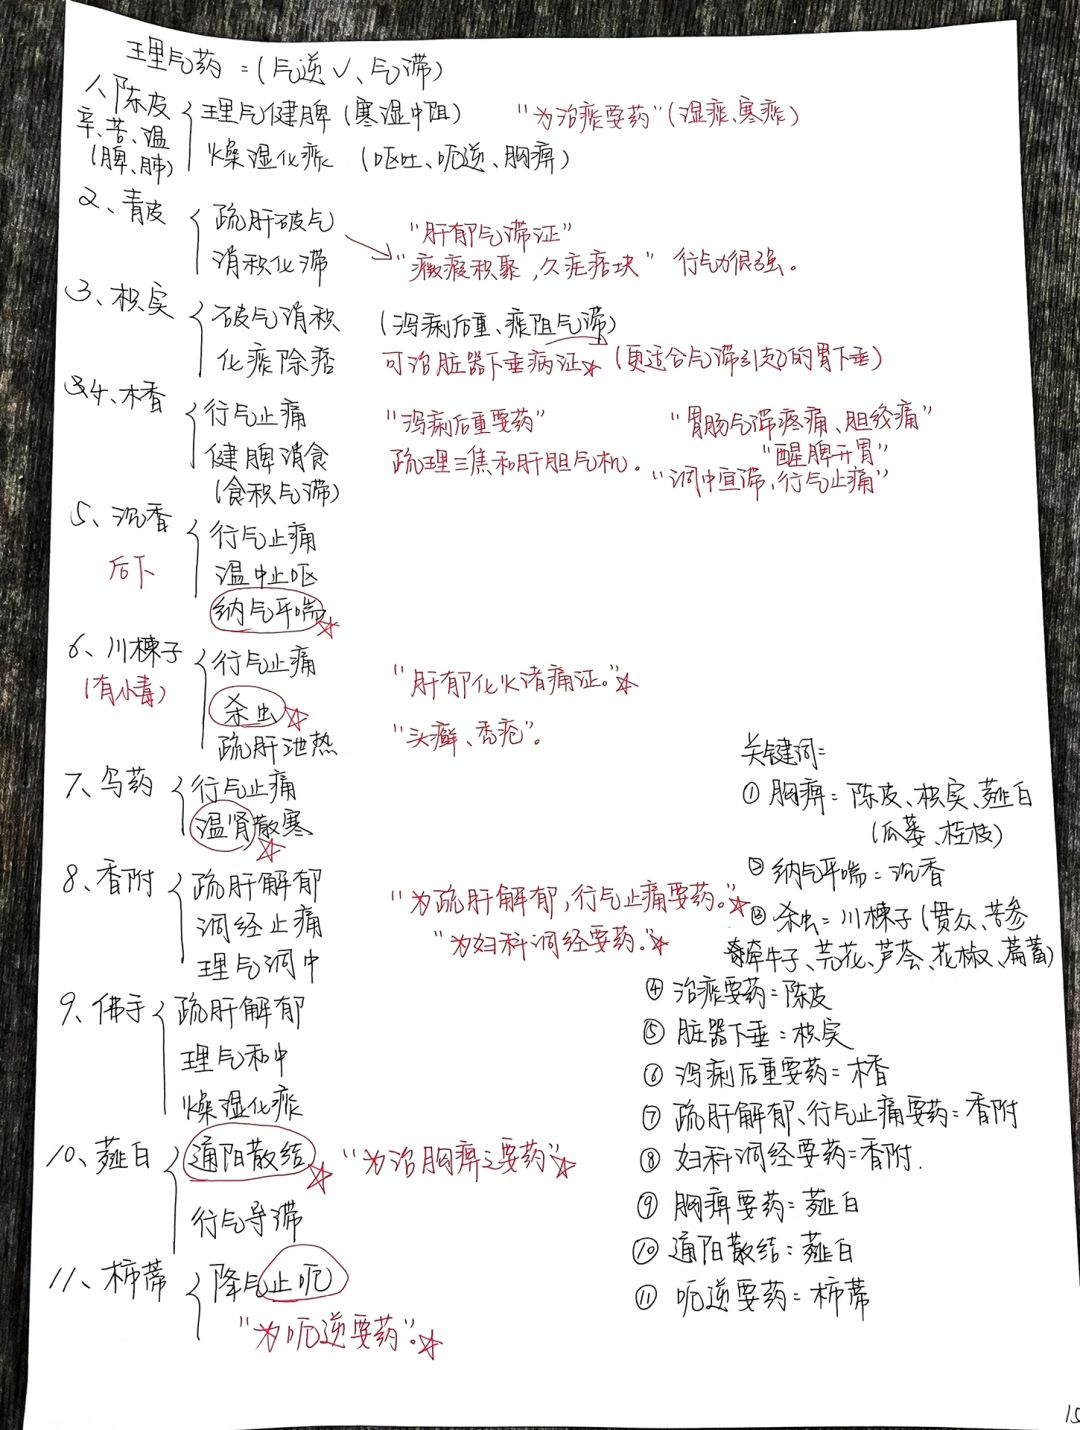 理气药=(气逆✓、气滞)
1、陈皮
辛、苦、温
(脾、肺)
理气健脾(寒湿中阻) “为治痰要药”(湿痰、寒痰)
燥湿化痰 (呕吐、呃逆、胸痹)
2、青皮
疏肝破气 “肝郁气滞证”
消积化滞 “癥瘕积聚,久疟痞块” 行气力很强。
3、枳实
破气消积 (泻痢后重、痰阻气滞)
化痰除痞 可治脏器下垂病证☆ (更适合气滞引起的胃下垂)
4、木香
行气止痛 “泻痢后重要药” “胃肠气滞疼痛、胆绞痛”
健脾消食 疏理三焦和肝胆气机。 “醒脾开胃”
(食积气滞) “调中宣滞,行气止痛”
5、沉香
后下
行气止痛
温中止呕
纳气平喘☆
6、川楝子
(有小毒)
行气止痛 “肝郁化火诸痛证。”☆
杀虫☆ “头癣、秃疮”。
疏肝泄热
7、乌药
行气止痛
温肾散寒☆
8、香附
疏肝解郁 “为疏肝解郁,行气止痛要药。”☆
调经止痛 “为妇科调经要药。”☆
理气调中
9、佛手
疏肝解郁
理气和中
燥湿化痰
10、薤白
通阳散结☆ “为治胸痹之要药”☆
行气导滞
11、柿蒂
降气止呃
“为呃逆要药”。☆
关键词=
① 胸痹=陈皮、枳实、薤白
(瓜蒌、桂枝)
② 纳气平喘=沉香
③ 杀虫=川楝子(贯众、苦参
牵牛子、芫花、芦荟、花椒、萹蓄)
④ 治痰要药=陈皮
⑤ 脏器下垂=枳实
⑥ 泻痢后重要药=木香
⑦ 疏肝解郁、行气止痛要药=香附
⑧ 妇科调经要药=香附.
⑨ 胸痹要药=薤白
⑩ 通阳散结=薤白
⑪ 呃逆要药=柿蒂
15